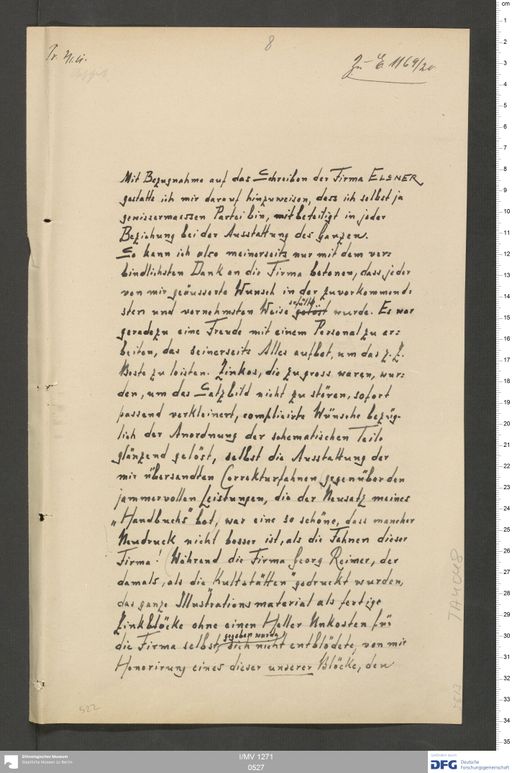 8
Zu E. 1169/20.
Mit Bezugnahme auf das Schreiben der Firma ELSNER
gestatte ich mir darauf hinzuweisen, dass ich selbst ja
gewissermaessen Partei bin, mitbeteiligt in jeder
Beziehung bei der Ausstattung des Ganzen.
So kann ich also meinerseits nur mit dem ver-
bindlichsten Dank an die Firma betonen, dass jeder
von mir geäusserte Wunsch in der zuvorkommend-
sten und vornehmsten Weise erfüllt wurde. Es war
geradezu eine Freude mit einem Personal zu ar-
beiten, das seinerseits Alles aufbot, um das z. Z.
Beste zu leisten. Zinkos, die zu gross waren, wur-
den, um das Satzbild nicht zu stören, sofort
passend verkleinert, complicirte Wünsche bezüg-
lich der Anordnung der schematischen Teile
glänzend gelöst, selbst die Ausstattung der
mir übersandten Correkturfahnen gegenüber den
jammervollen Leistungen, die der Neusatz meines
„Handbuchs" bot, war eine so schöne, dass mancher
Neudruck nicht besser ist, als die Fahnen dieser
Firma! Während die Firma Georg Reimer, der
damals, als die Kultstätten" gedruckt wurden,
das ganze Illustrationsmaterial als fertige
Zinkblöcke ohne einen Heller Unkosten für
die Firma selbst gegeben wurde, sich nicht entblödete, von mir
Honorirung eines dieser unserer Blöcke, den
522
Ethnologisches Museum
Staatliche Museen zu Berlin
I/MV 1271
0527
DFG Deutsche
Forschungsgemeinschaft